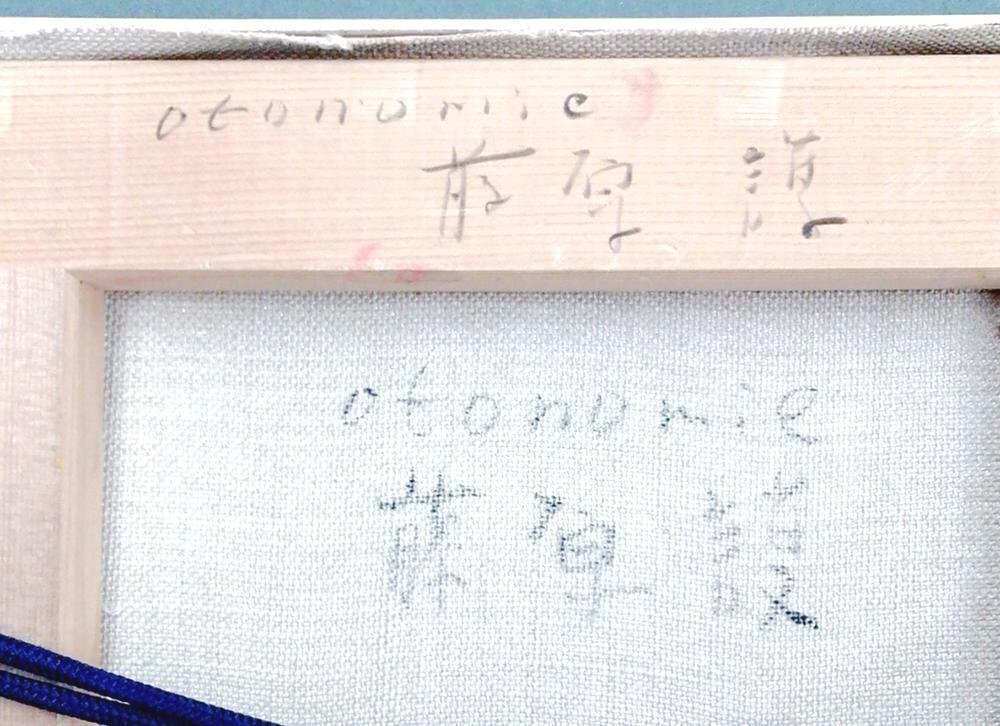 otonomie
藤原 護
otonomie
藤原 護